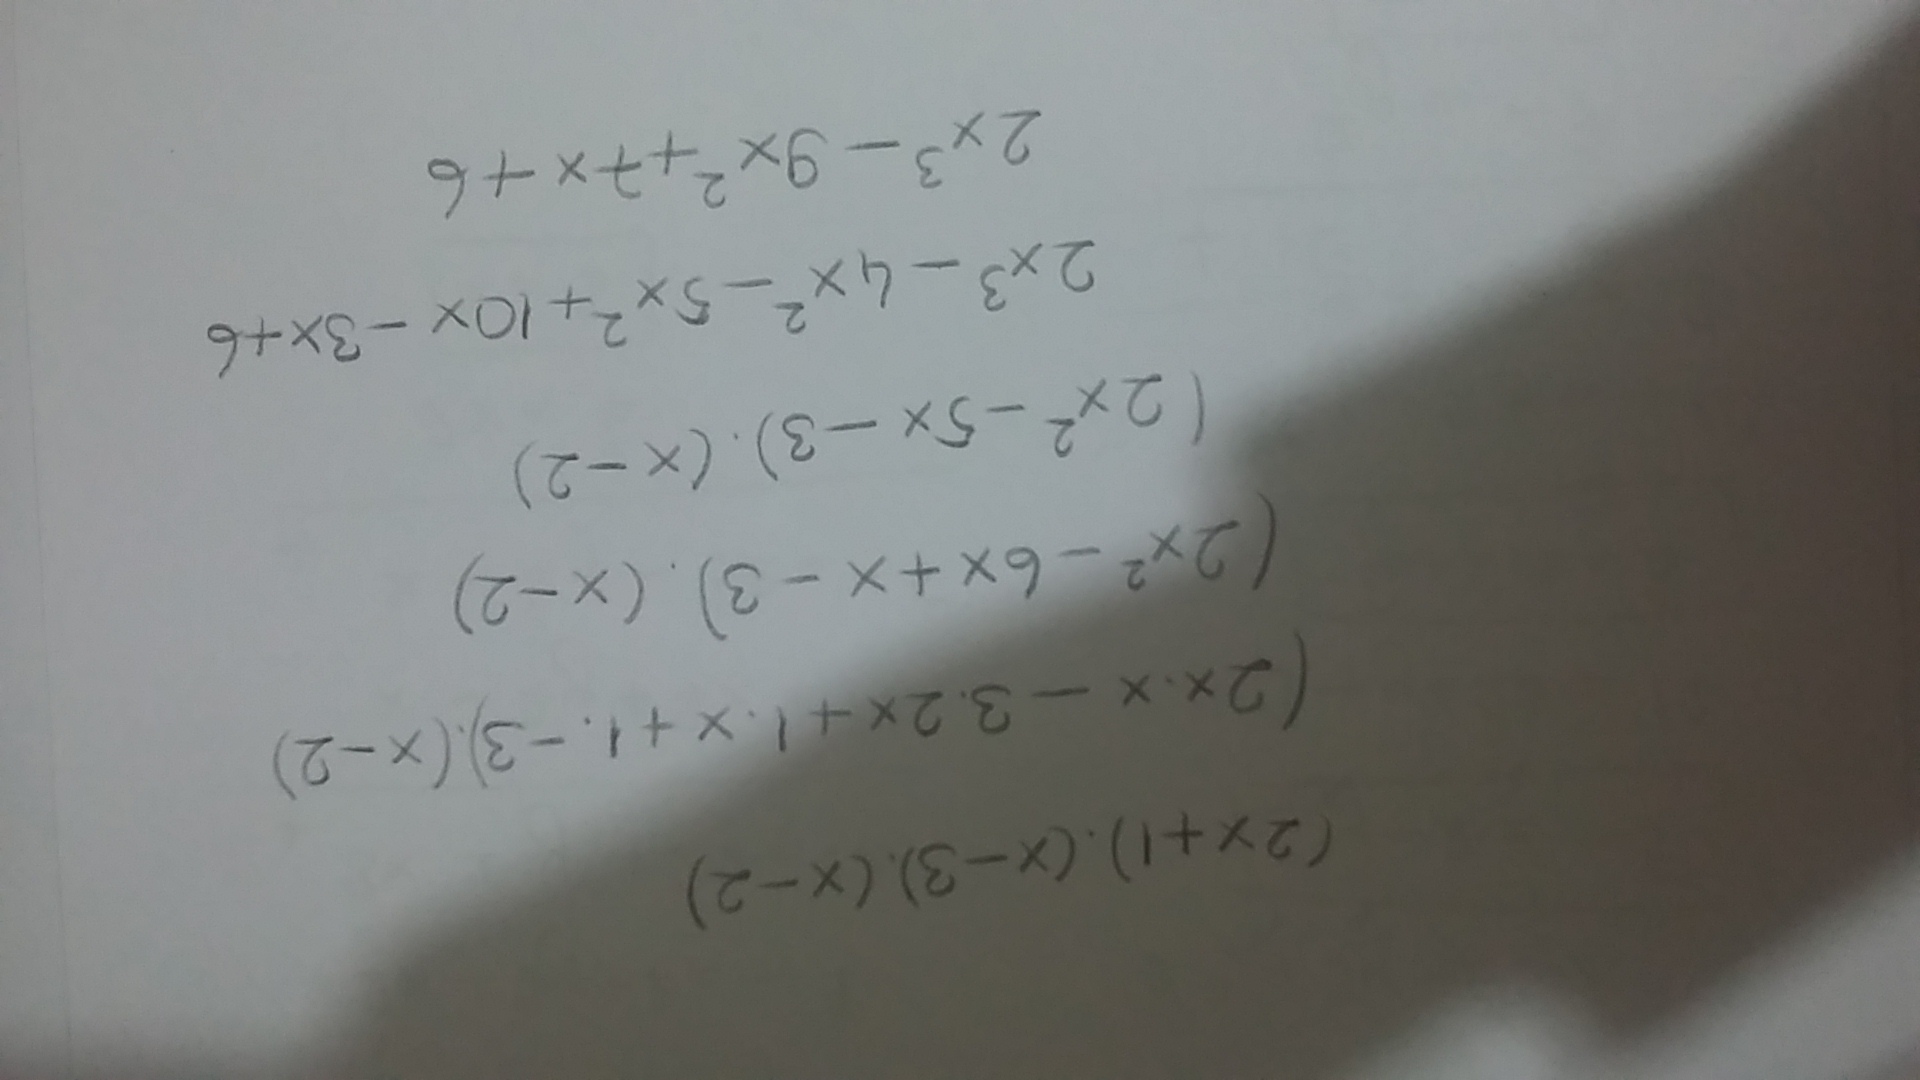 (2x+1).(x-3).(x-2)
(2x.x - 3.2x+1.x+1.-3).(x-2)
(2x² - 6x+x - 3).(x-2)
(2x² - 5x - 3).(x-2)
2x³ - 4x² - 5x² + 10x - 3x+6
2x³ - 9x² + 7x + 6